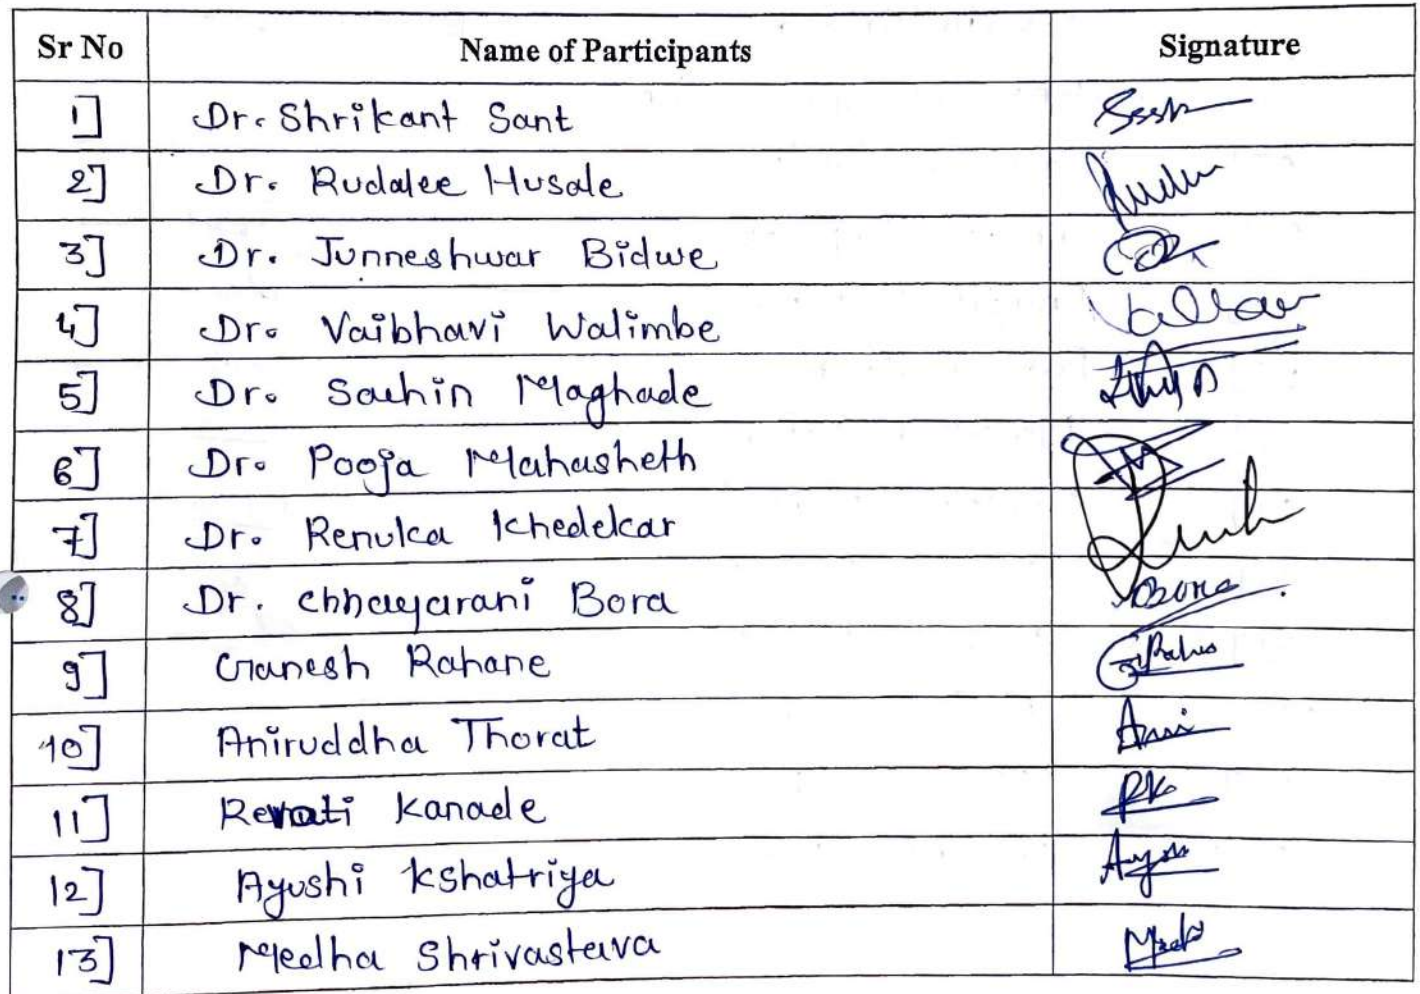 Sr No Name of Participants Signature
1] Dr. Shrikant Sant
2] Dr. Rudalee Husale
3] Dr. Junneshwar Bidwe
4] Dr. Vaibhavi Walimbe
5] Dr. Sachin Maghade
6] Dr. Pooja Mahasheth
7] Dr. Renuka Khedekar
8] Dr. Chhayarani Bora Bora
9] Ganesh Rahane
10] Aniruddha Thorat
11] Revati Kanade RK
12] Ayushi Kshatriya
13] Medha Shrivastava